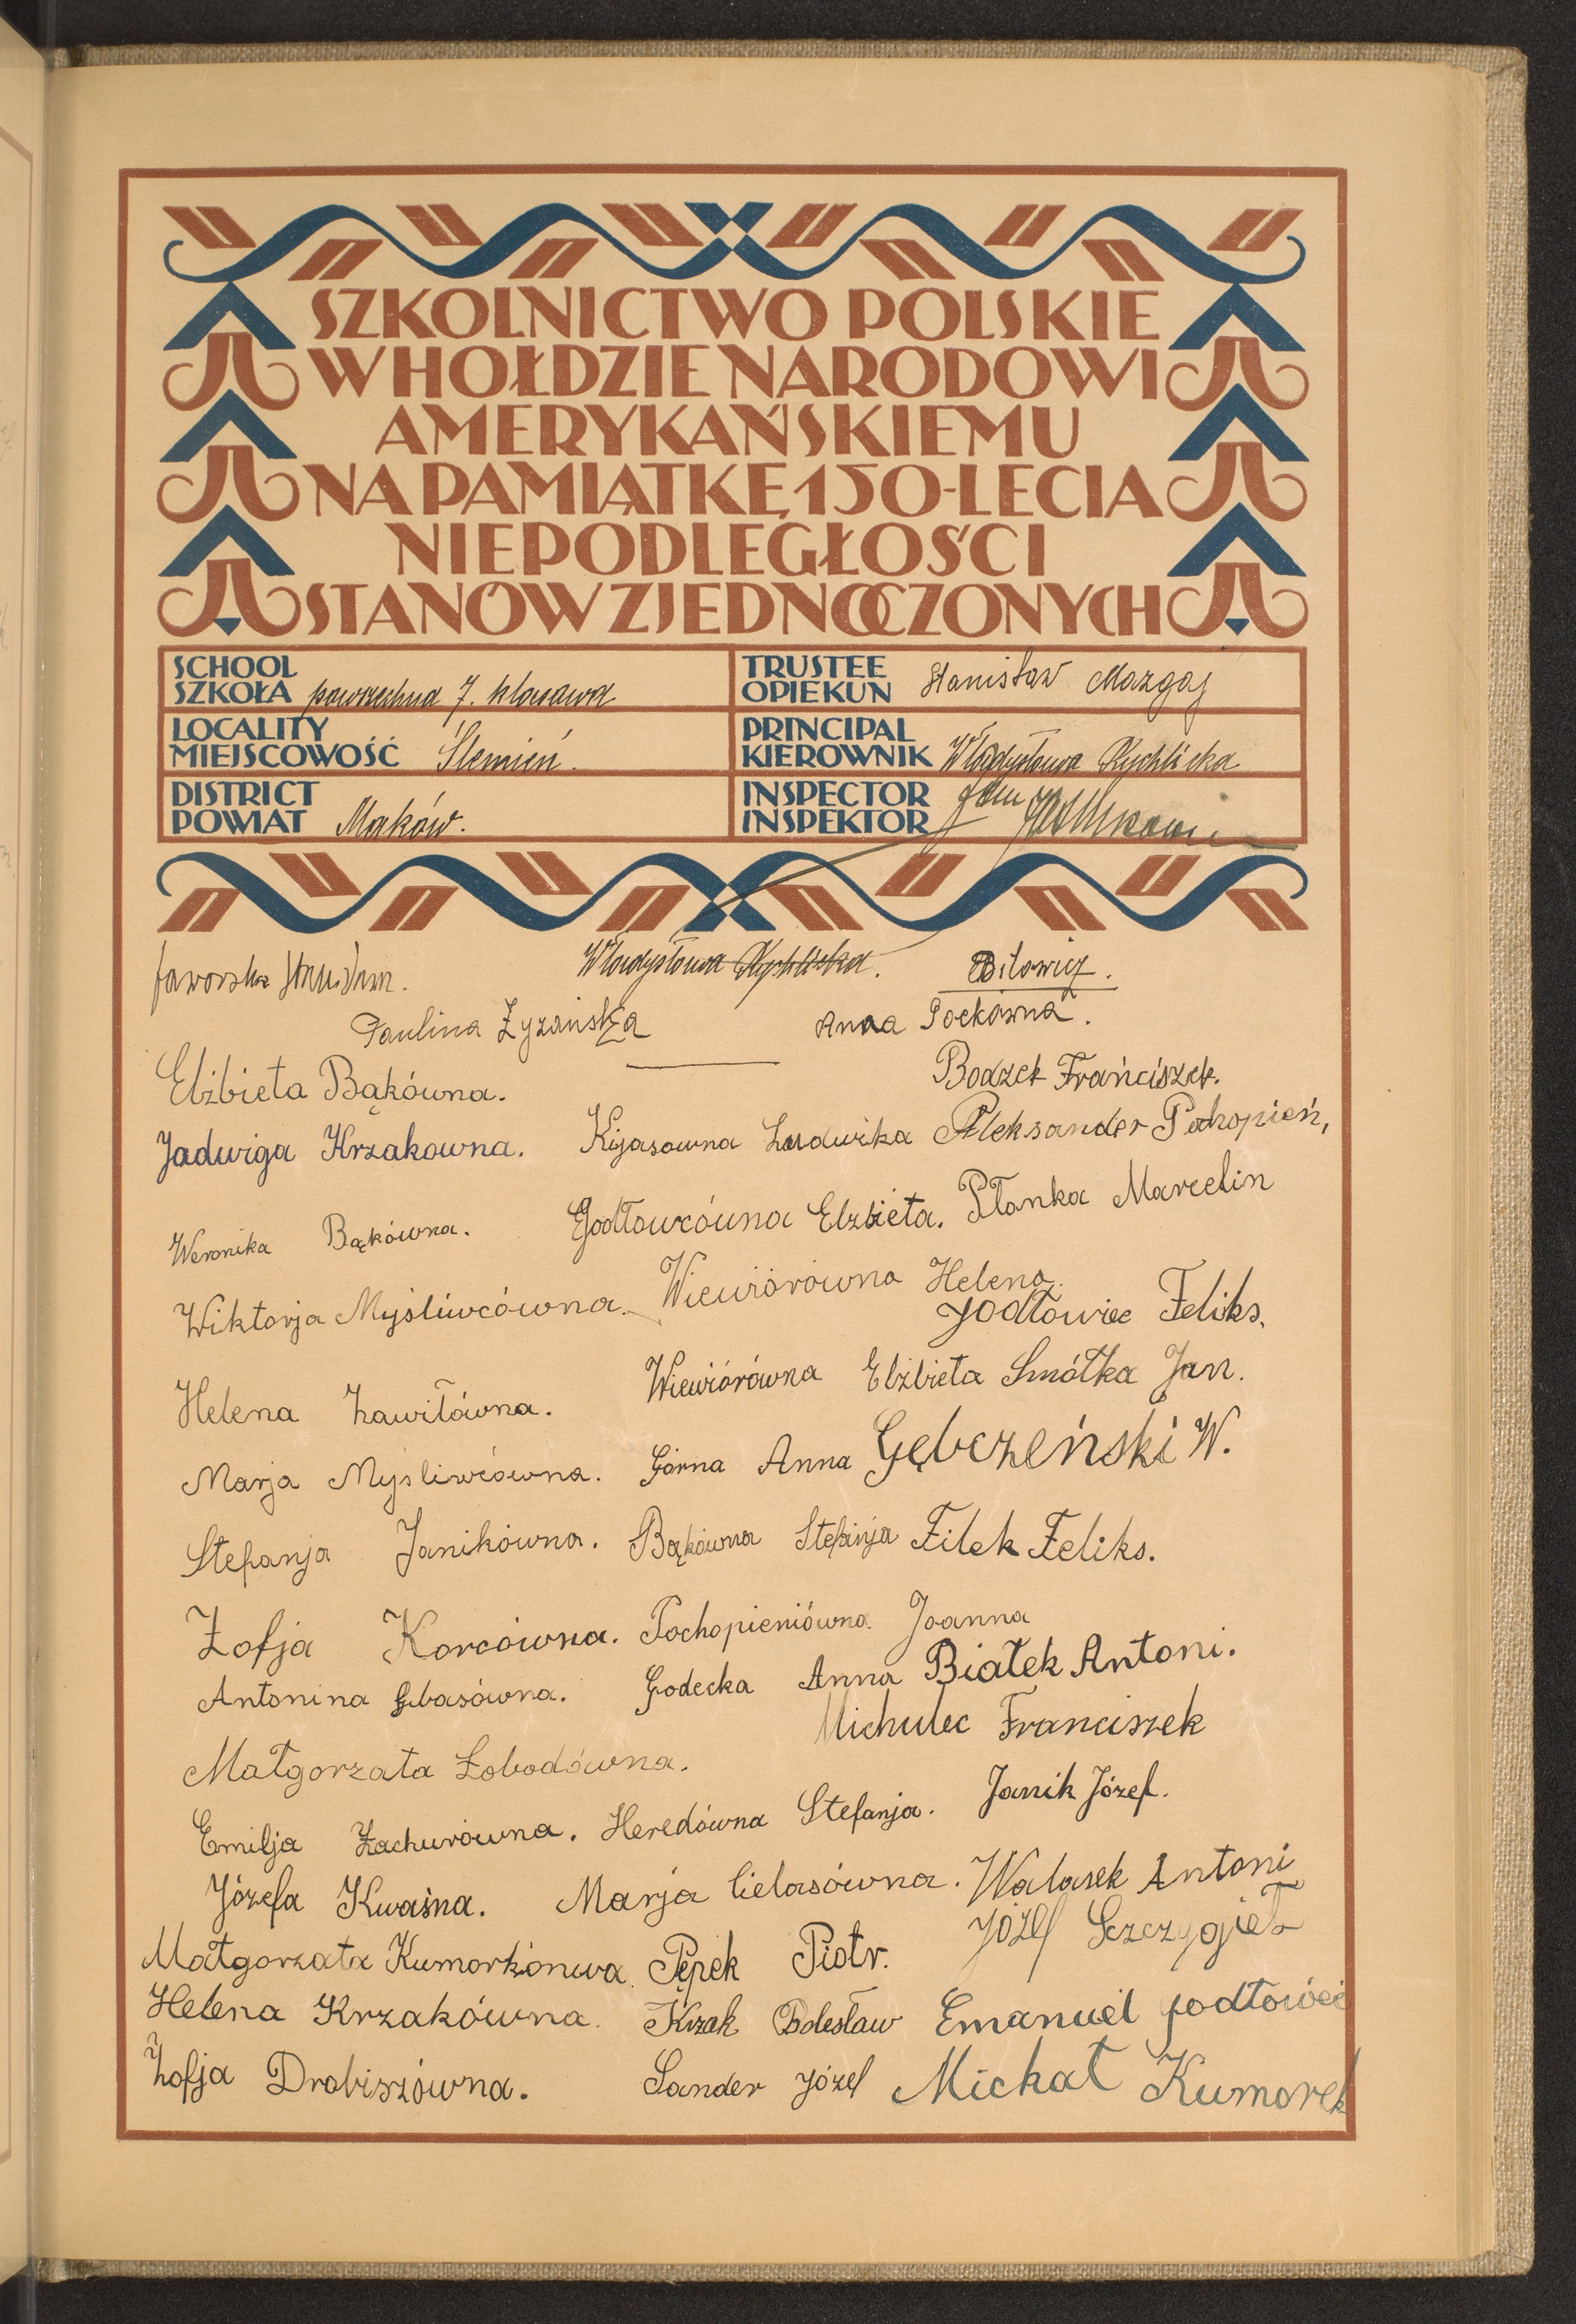 SZKOLNICTWO POLSKIE
W HOŁDZIE NARODOWI
AMERYKAŃSKIEMU
NA PAMIĄTKĘ 150-LECIA
NIEPODLEGŁOŚCI
STANÓW ZJEDNOCZONYCH
SCHOOL
SZKOŁA powszechna 7. klasowa
TRUSTEE
OPIEKUN Stanisław Mazgaj
LOCALITY
MIEJSCOWOŚĆ Ślemień.
PRINCIPAL
KIEROWNIK Władysława Rychlicka
DISTRICT
POWIAT Maków.
INSPECTOR
INSPEKTOR Jan
Jaworska Władysława Rychlicka. Bilowicz.
Paulina Zyzańska Anna Pockówna.
Elżbieta Bąkówna. Bodzek Franciszek.
Jadwiga Krzakowna. Kijasowna Ludwika Aleksander Pochopień,
Weronika Bąkówna. Godławcówna Elzbieta. Płonka Marcelin
Wiktorja Myśliwcówna. Wiewiórówna Helena.
Jodłowiec Feliks.
Helena Zawiłówna. Wiewiórówna Elżbieta Smółka Jan.
Marja Myśliwcówna. Górna Anna Gębczeński W.
Stefanja Janikówna. Bąkówna Stefanja Filek Feliks.
Zofja Korcówna. Pochopieniówna Joanna
Antonina Gbasówna. Godecka Anna Białek Antoni.
Michulec Franciszek
Małgorzata Łobodówna.
Emilja Zachurówna. Heredówna Stefanja. Janik Józef.
Józefa Kwaśna. Marja Cielasówna. Walasek Antoni
Józef Szczygieł
Małgorzata Kumorkónwa. Pępek Piotr.
Helena Krzakówna. Krzak Bolesław Emanuel Jodłowiec
Zofja Drobiszówna. Sander Józef Michał Kumorek